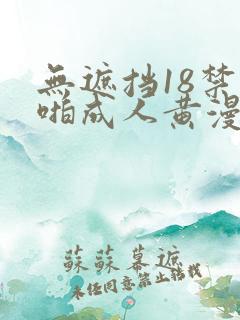 無遮挡18禁
啪成人黄漫
蘇蘇幕遮
未经同意禁止转载